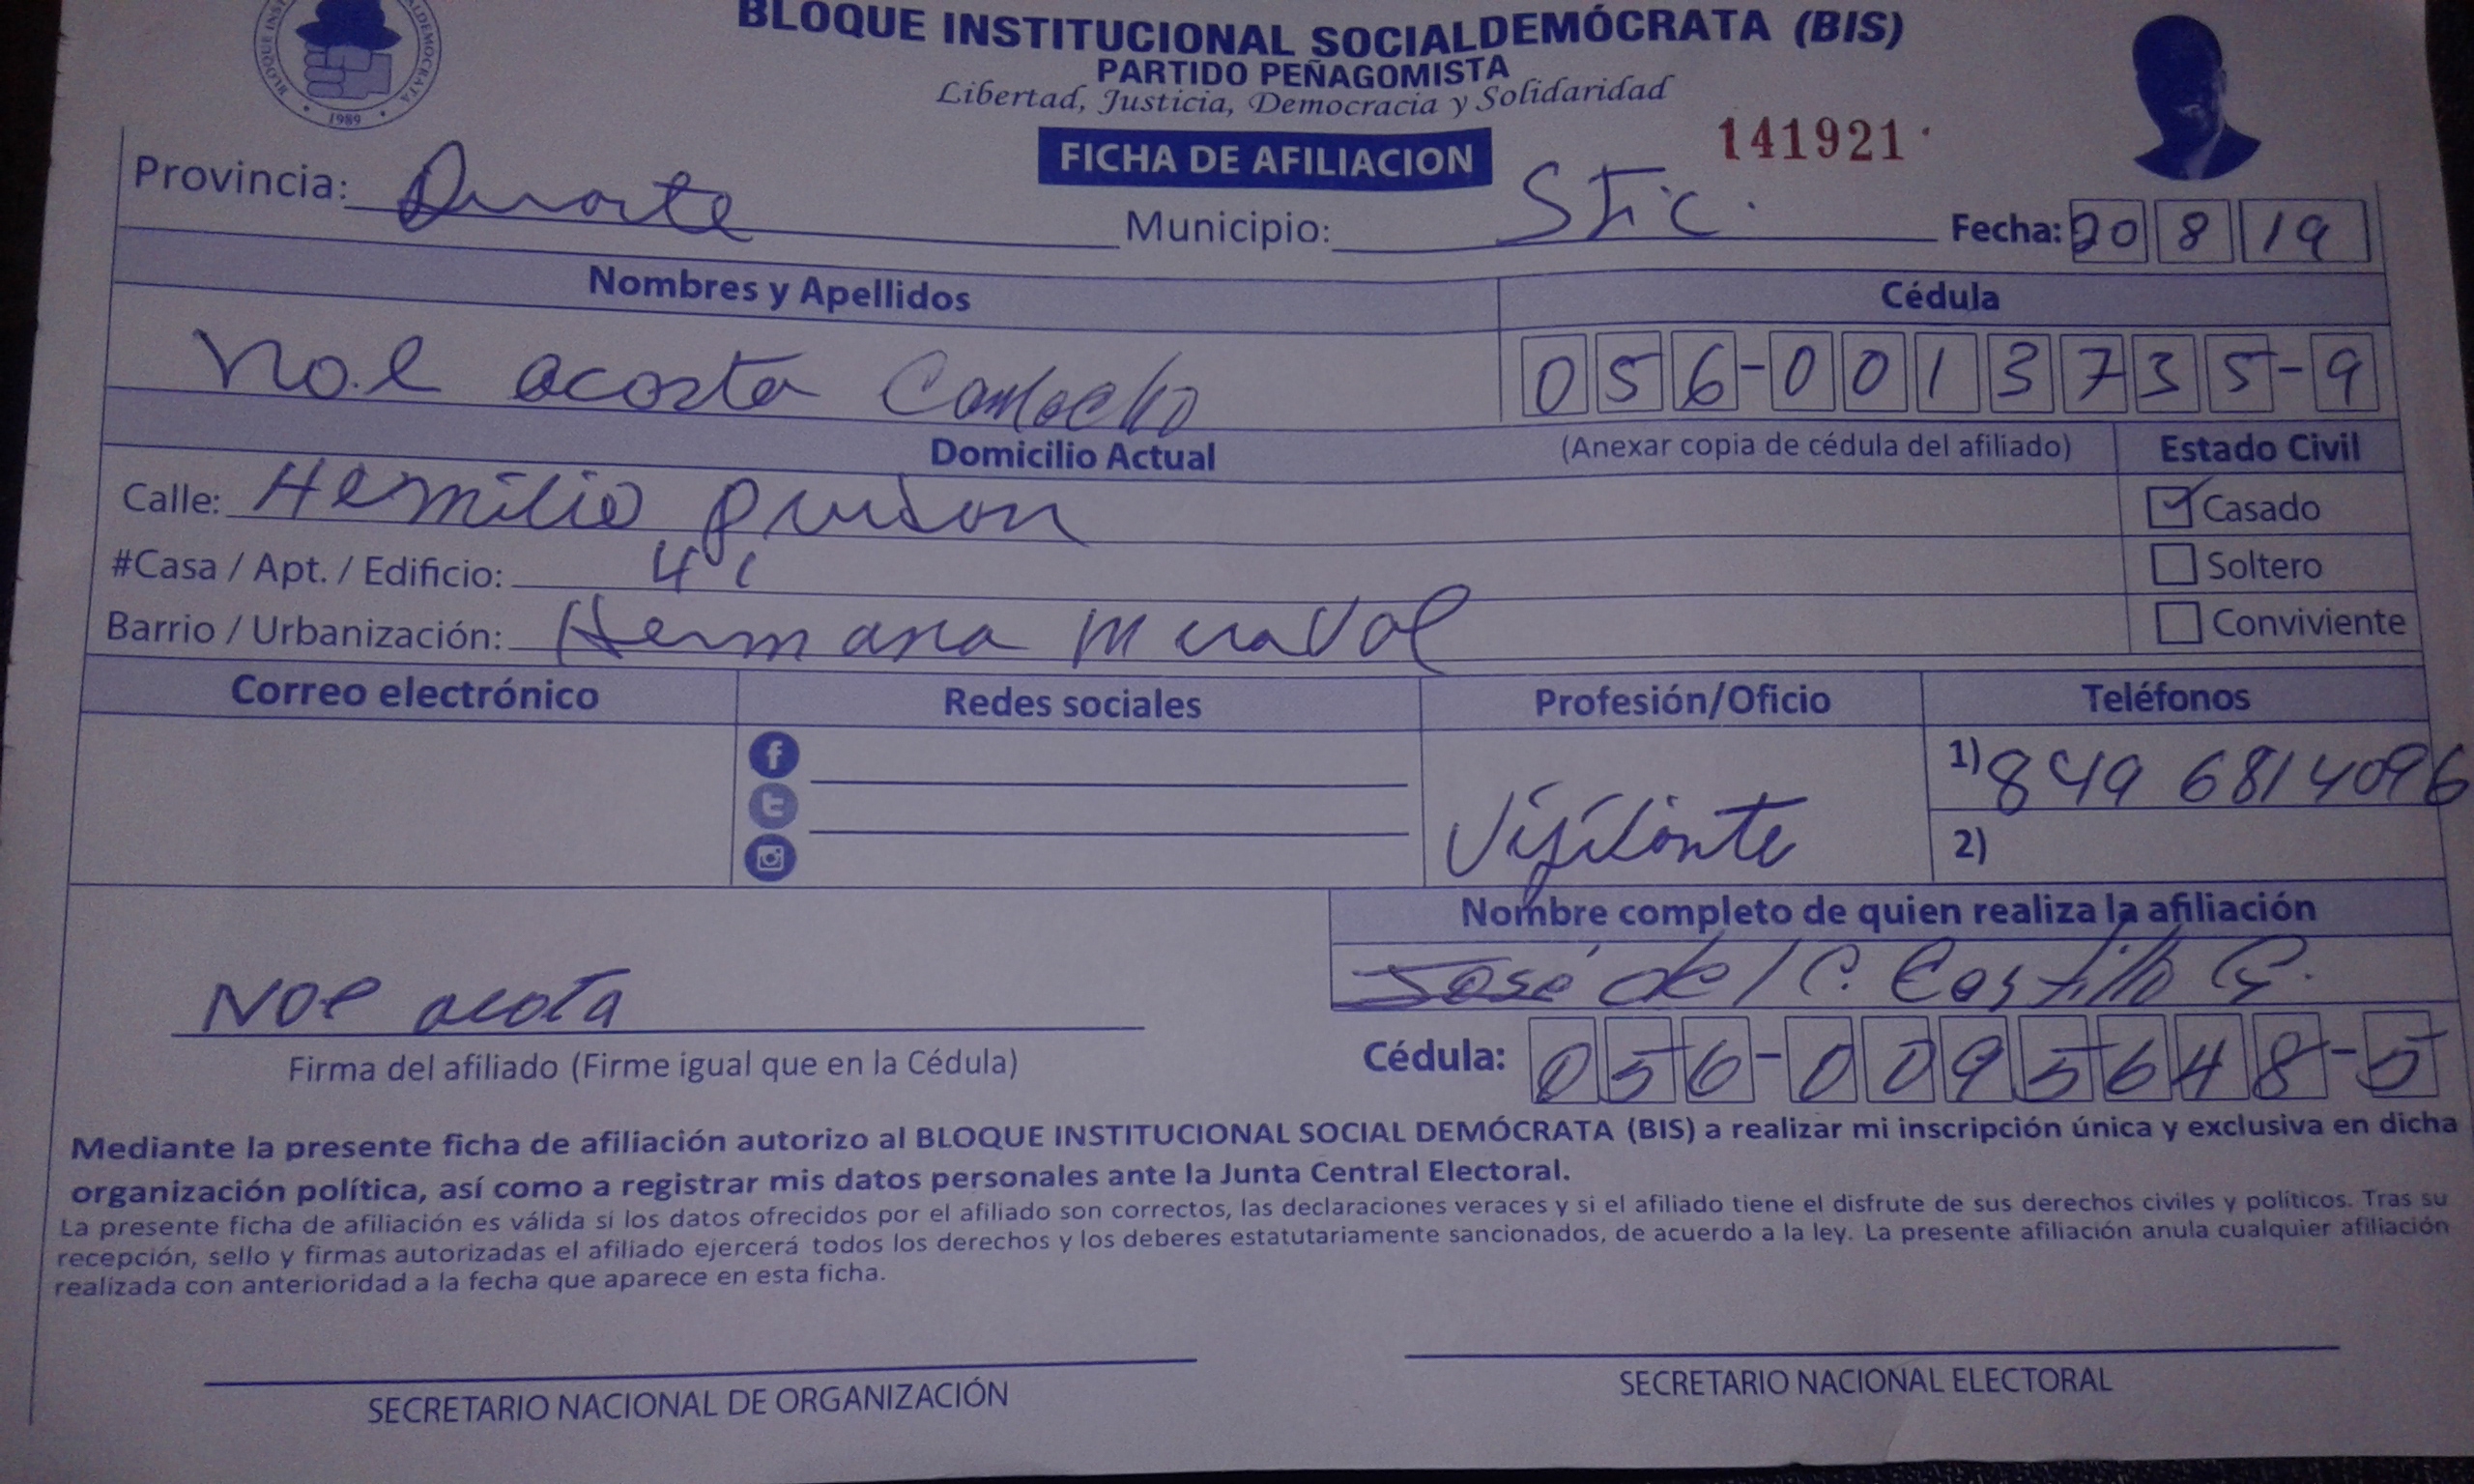 BLOQUE INSTITUCIONAL SOCIALDEMÓCRATA (BIS)
PARTIDO PEÑAGOMISTA
Libertad, Justicia, Democracia y Solidaridad
1989
FICHA DE AFILIACION
141921
Provincia: Duarte Municipio: Fecha: 20 8 19
Nombres y Apellidos Cédula
Noel acosta 056-0013735-9
Domicilio Actual (Anexar copia de cédula del afiliado) Estado Civil
Calle: Hemilio Casado
#Casa / Apt. / Edificio: Soltero
Barrio / Urbanización: Hermana Conviviente
Correo electrónico Redes sociales Profesión/Oficio Teléfonos
1) 849 6814096
Vijilante
2)
Nombre completo de quien realiza la afiliación
José del C. Castillo G.
Noel acota
Firma del afiliado (Firme igual que en la Cédula)
Cédula: 056-0095648-5
Mediante la presente ficha de afiliación autorizo al BLOQUE INSTITUCIONAL SOCIAL DEMÓCRATA (BIS) a realizar mi inscripción única y exclusiva en dicha
organización política, así como a registrar mis datos personales ante la Junta Central Electoral.
La presente ficha de afiliación es válida si los datos ofrecidos por el afiliado son correctos, las declaraciones veraces y si el afiliado tiene el disfrute de sus derechos civiles y políticos. Tras su
recepción, sello y firmas autorizadas el afiliado ejercerá todos los derechos y los deberes estatutariamente sancionados, de acuerdo a la ley. La presente afiliación anula cualquier afiliación
realizada con anterioridad a la fecha que aparece en esta ficha.
SECRETARIO NACIONAL DE ORGANIZACIÓN SECRETARIO NACIONAL ELECTORAL